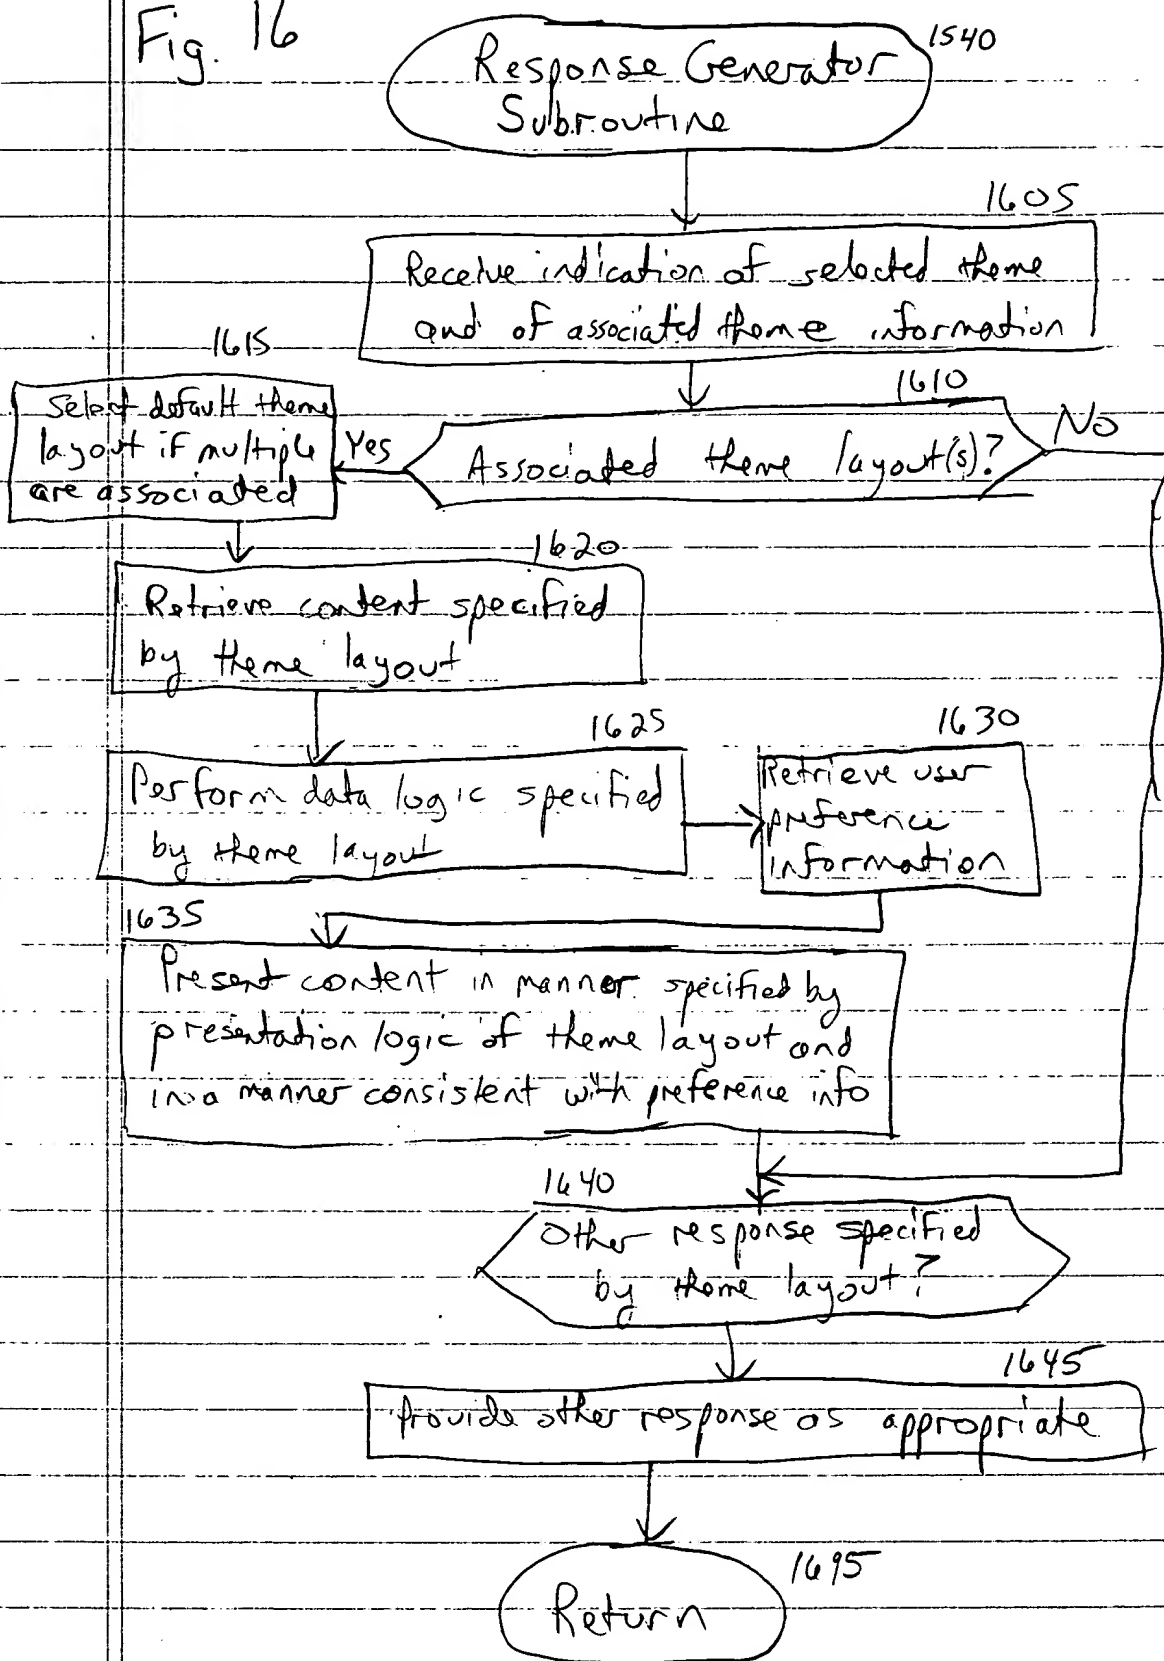 Fig. 16
1540
Response Generator
Subroutine
1605
Receive indication of selected theme
and of associated theme information
1610
Associated theme layout(s)?
No
Yes
1615
Select default theme
layout if multiple
are associated
1620
Retrieve content specified
by theme layout
1625
Perform data logic specified
by theme layout
1630
Retrieve user
preference
information
1635
Present content in manner specified by
presentation logic of theme layout and
in a manner consistent with preference info
1640
Other response specified
by theme layout?
1645
Provide other response as appropriate
1695
Return